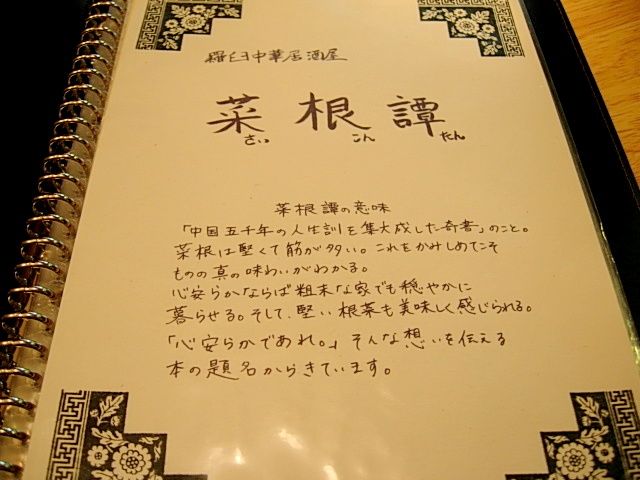 羅臼中華居酒屋
菜根譚
さい こん たん
菜根譚の意味
「中国五千年の人生訓を集大成した奇書」のこと。
菜根は堅くて筋が多い。これをかみしめてこそ
ものの真の味わいがわかる。
心安らかならば粗末な家でも穏やかに
暮らせる。そして、堅い根菜も美味しく感じられる。
「心安らかであれ。」そんな想いを伝える
本の題名からきています。